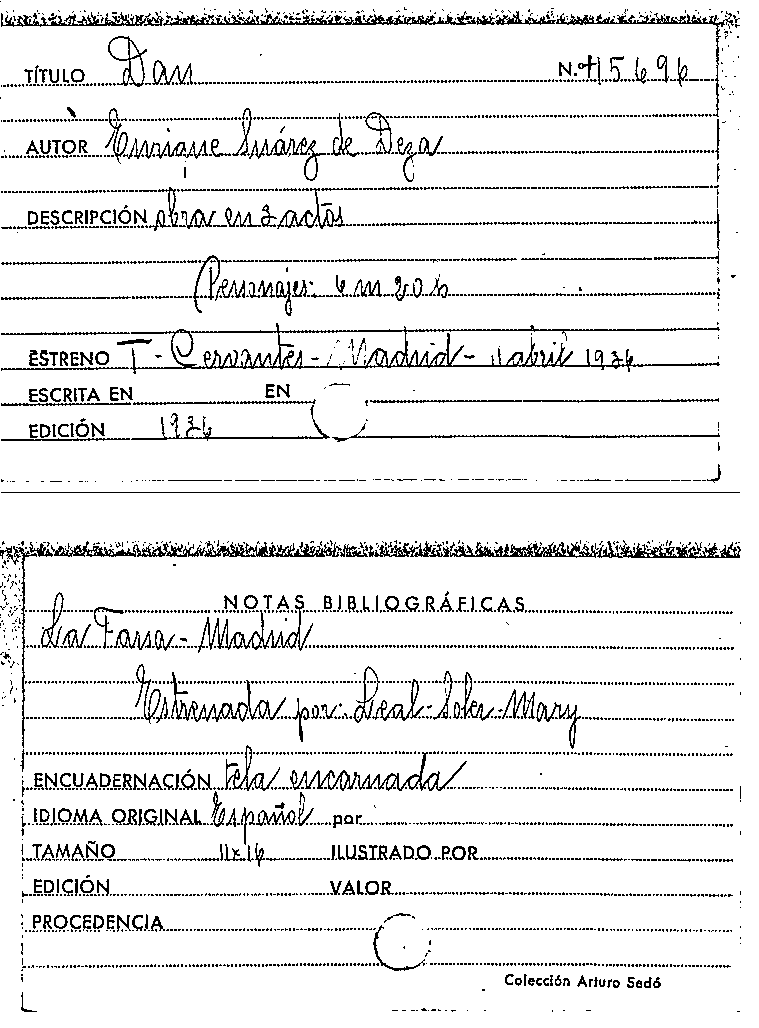 TÍTULO Dan N.º 45696
AUTOR Enrique Suárez de Deza
DESCRIPCIÓN obra en 3 actos
Personajes: 6 m 20 h
ESTRENO T. Cervantes - Madrid - 11 abril 1936
ESCRITA EN EN
EDICIÓN 1936
NOTAS BIBLIOGRÁFICAS
La Farsa - Madrid
Estrenada por: Leal - Soler - Mary
ENCUADERNACIÓN tela encarnada
IDIOMA ORIGINAL Español por
TAMAÑO 11x16 ILUSTRADO POR
EDICIÓN VALOR
PROCEDENCIA
Colección Arturo Sedó